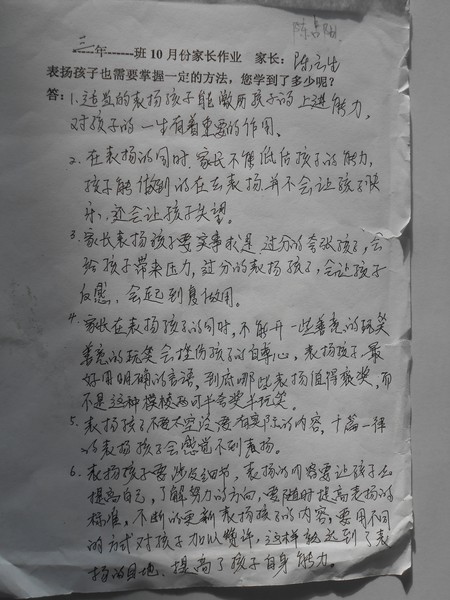 三年------班10月份家长作业 家长：陈
表扬孩子也需要掌握一定的方法，您学到了多少呢？
答：1.适当的表扬孩子能激励孩子的上进能力，
对孩子的一生有着重要的作用。
2.在表扬的同时，家长不能低估孩子的能力，
孩子能做到的在去表扬并不会让孩子快
乐，还会让孩子失望。
3.家长表扬孩子要实事求是，过分的夸张孩子，会
给孩子带来压力，过分的表扬孩子，会让孩子
反感，会起到负做用。
4.家长在表扬孩子的同时，不能开一些善意的玩笑
善意的玩笑会挫伤孩子的自尊心，表扬孩子，最
好用明确的言语，到底哪些表扬值得褒奖，而
不是这种模棱两可半夸奖半玩笑。
5.表扬孩子不要太空洞要有实际的内容，千篇一律
的表扬孩子会感觉不到表扬。
6.表扬孩子要涉及细节，表扬的内容要让孩子去
提高自己，了解努力的方向，要随时提高表扬的
标准，不断的更新表扬孩子的内容，要用不同
的方式对孩子加以赞许，这样能达到了表
扬的目地，提高了孩子自身能力。